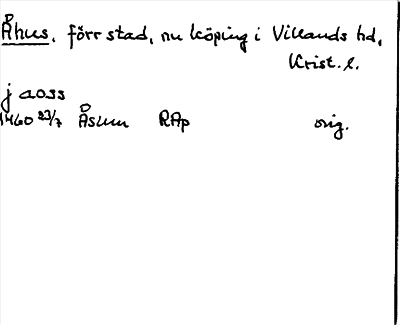 Åhus, förr stad, nu köping i Villands hd,
Krist. l.
j aoss
1460 23/7 Åslum RAp orig.